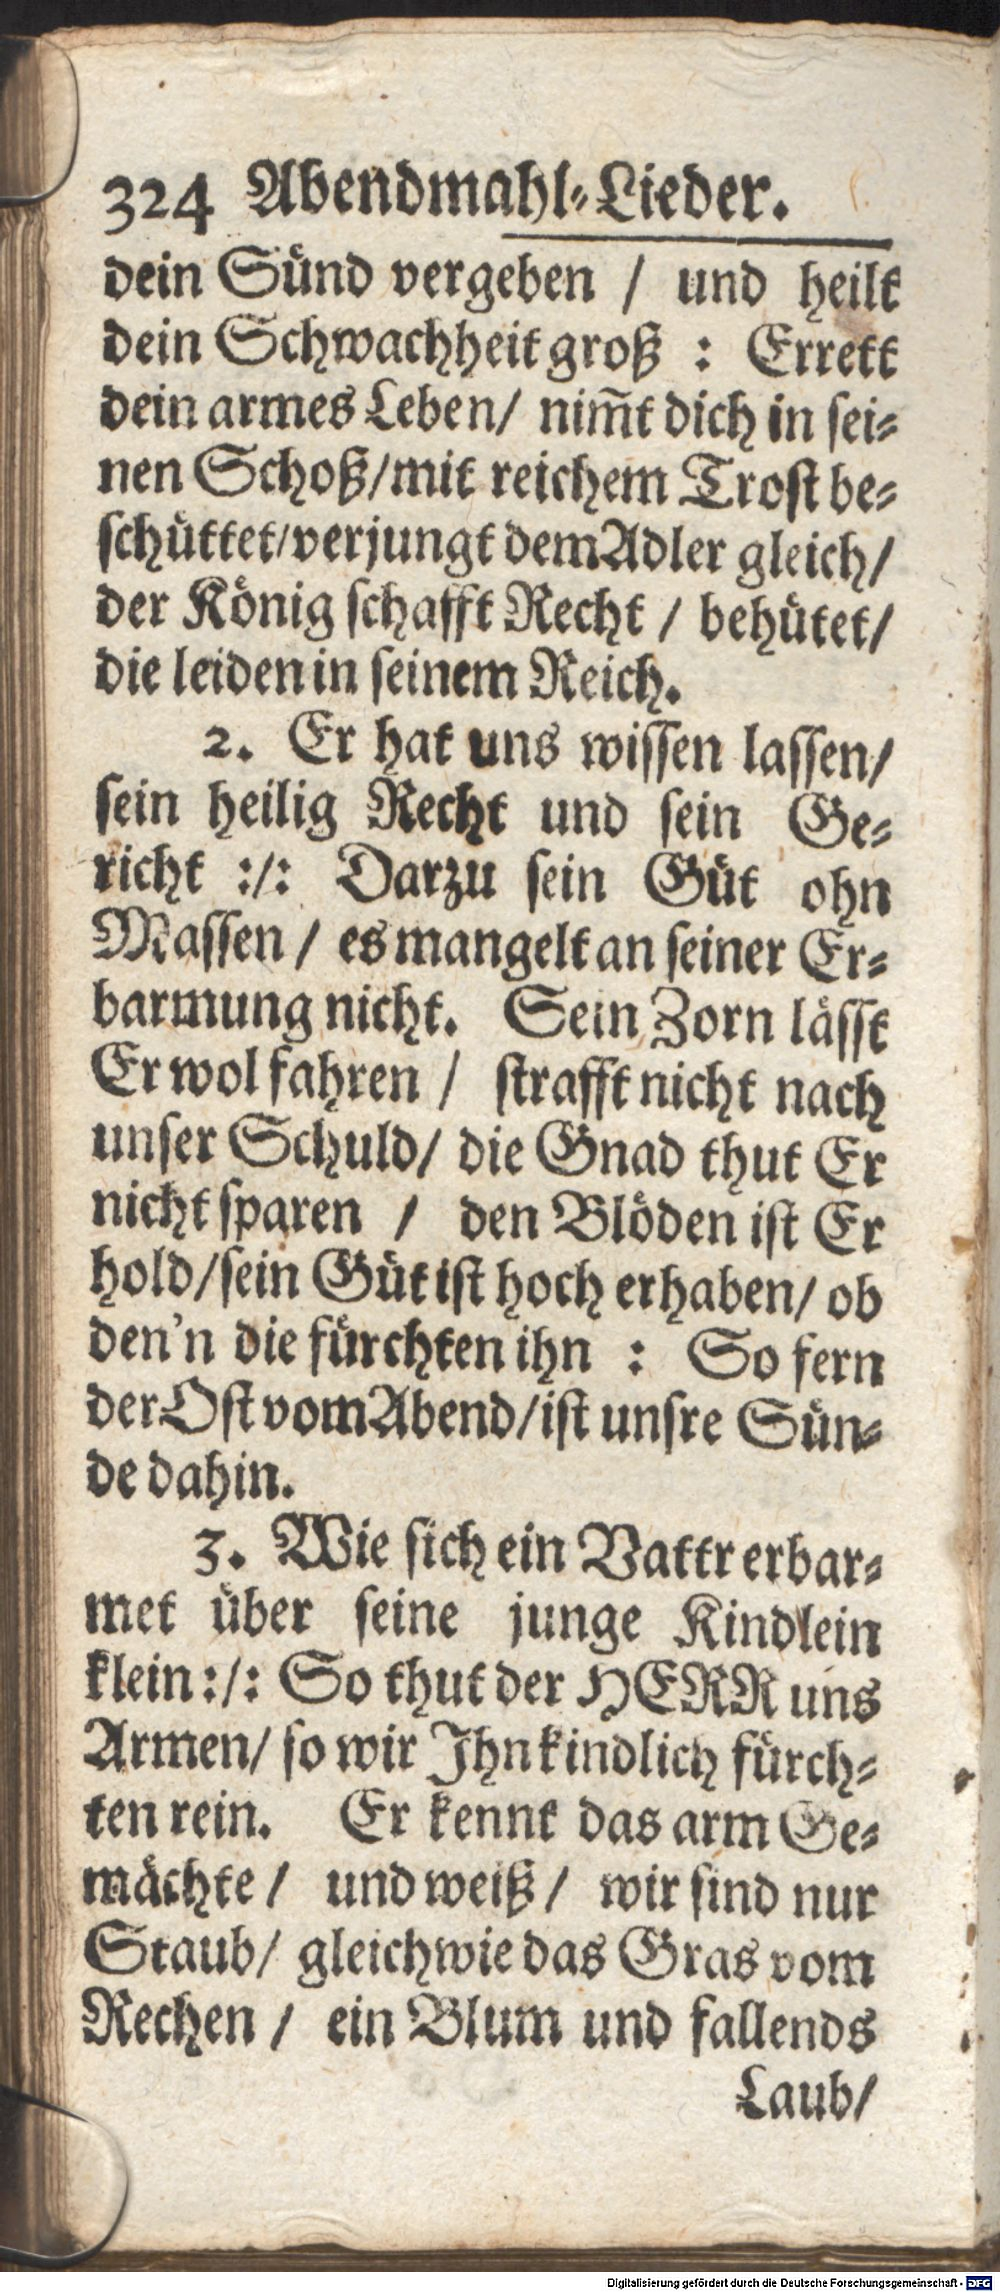 324 Abendmahl-Lieder.
dein Sünd vergeben / und heilt
dein Schwachheit groß : Errett
dein armes Leben/ nim̃t dich in sei-
nen Schoß/mit reichem Trost be-
schüttet/verjungt dem Adler gleich/
der König schafft Recht / behütet/
die leiden in seinem Reich.
2. Er hat uns wissen lassen/
sein heilig Recht und sein Ge-
richt :/: Darzu sein Güt ohn
Massen / es mangelt an seiner Er-
barmung nicht. Sein Zorn lässt
Er wol fahren / strafft nicht nach
unser Schuld/ die Gnad thut Er
nicht sparen / den Blöden ist Er
hold/sein Güt ist hoch erhaben/ ob
den'n die fürchten ihn : So fern
der Ost vom Abend/ist unsre Sün-
de dahin.
3. Wie sich ein Vattr erbar-
met über seine junge Kindlein
klein:/: So thut der HERR uns
Armen/ so wir Ihn kindlich fürch-
ten rein. Er kennt das arm Ge-
mächte / und weiß / wir sind nur
Staub/ gleichwie das Gras vom
Rechen / ein Blum und fallends
Laub/
Digitalisierung gefördert durch die Deutsche Forschungsgemeinschaft - DFG